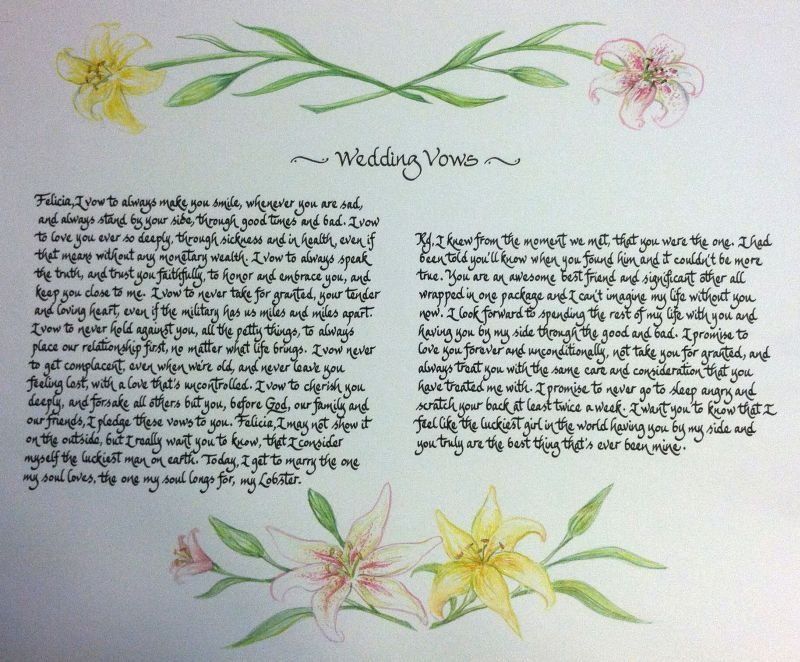 ~ Wedding Vows ~
Felicia, I vow to always make you smile, whenever you are sad,
and always stand by your side, through good times and bad. I vow
to love you ever so deeply, through sickness and in health, even if
that means without any monetary wealth. I vow to always speak
the truth, and trust you faithfully, to honor and embrace you, and
keep you close to me. I vow to never take for granted, your tender
and loving heart, even if the military has us miles and miles apart.
I vow to never hold against you, all the petty things, to always
place our relationship first, no matter what life brings. I vow never
to get complacent, even when we're old, and never leave you
feeling lost, with a love that's uncontrolled. I vow to cherish you
deeply, and forsake all others but you, before God, our family and
our friends, I pledge these vows to you. Felicia, I may not show it
on the outside, but I really want you to know, that I consider
myself the luckiest man on earth. Today, I get to marry the one
my soul loves, the one my soul longs for, my Lobster.
I knew from the moment we met, that you were the one. I had
been told you'll know when you found him and it couldn't be more
true. You are an awesome best friend and significant other all
wrapped in one package and I can't imagine my life without you
now. I look forward to spending the rest of my life with you and
having you by my side through the good and bad. I promise to
love you forever and unconditionally, not take you for granted, and
always treat you with the same care and consideration that you
have treated me with. I promise to never go to sleep angry and
scratch your back at least twice a week. I want you to know that I
feel like the luckiest girl in the world having you by my side and
you truly are the best thing that's ever been mine.